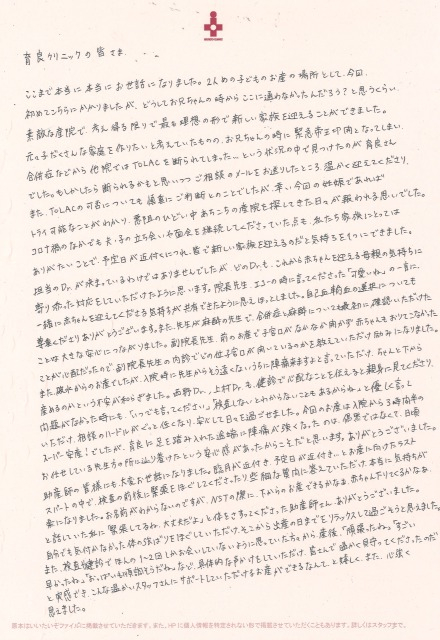 育良クリニックの皆さま
ここまで本当に本当にお世話になりました。2人めの子どものお産の場所として、今回、
初めてこちらにかかりましたが、どうしてお兄ちゃんの時からここに通わなかったんだろう？と思うくらい
素敵な産院で、考え得る限りで最も理想の形で新しい家族を迎えることができました。
元々子だくさんな家庭を作りたいと考えていたものの、お兄ちゃんの時に緊急帝王切開となってしまい、
合併症などから他院ではTOLACを断られてしまった…という状況の中で見つけたのが育良さん
でした。もしかしたら断られるかもと思いつつご相談のメールをお送りしたところ、温かく迎えてくださり、
また、TOLACの可否についても慎重にご判断とのことでしたが、幸い、今回の妊娠であれば
トライ可能なことがわかり、悪阻のひどい中あちこちの産院を探してきた日々が報われる思いでした。
コロナ禍のなかでも夫・子の立ち会いや面会を継続してくださっていた点も、私たち家族にとっては
ありがたいことで、予定日が近付くにつれ、皆で新しい家族を迎えるのだと気持ちを1つにできました。
担当のDr.が決まっているわけではありませんでしたが、どのDr.も、これから赤ちゃんを迎える母親の気持ちに
寄り添った対応をしていただけたように思います。院長先生、エコーの時に言ってくださった「可愛いね」の一言に、
一緒に赤ちゃんを迎えてくださる気持ちが共有できたように思えほっとしました。自己血輸血の選択についても
尊重くださりありがとうございます。また、先生が麻酔の先生で、合併症と麻酔についても最初に確認いただけた
ことは大きな安心につながりました。副院長先生、前のお産で子宮口がなかなか開かず赤ちゃんもおりてこなかった
ことが心配だったので副院長先生の内診でどの位子宮口が開いているのかを教えていただけ励みになりました。
また、破水からのお産でしたが、入院時に先生からもう遠くないうちに陣痛来ますよと言っていただけ、ちゃんと下から
産めるのかという不安が和らぎました。西野Dr.、上村Dr.も、健診で心配なことを伝えると親身に見てくださり、
問題がなかった時にも、「いつでも言ってください」「検査しないとわからないこともあるからね」と優しく言って
いただけ、相談のハードルがぐっと低くなり、安心して日々を過ごせました。今回のお産は入院から3時間半の
スーパー安産！でしたが、育良に足を踏み入れた途端に陣痛が強くなったのは、偶然ではなくて、日頃
お任せしている先生方の所に辿り着けたという安心感があったからこそだと思います。ありがとうございました。
助産師の皆様にも大変お世話になりました。臨月が近付き、予定日が近付き…とお産に向けたラスト
スパートの中で、検査の前後に緊張をほぐしてくださったり些細な質問に答えていただけ、本当に気持ちが
楽になりました。お名前がわからないのですが、NSTの際に、下からのお産できるかなぁ、赤ちゃん下りてくるかなぁ、
と話していた私に「緊張してるね、大丈夫だよ」と体をさすってくださった助産師さん、ありがとうございました。
自分でも気付かなかった体の強ばりをほぐしていただけ、そこから出産の日までをリラックスして過ごそうと思えました。
また、検査や健診でほんの1〜2回しかお会いしていないように思っていた方々から、産後、「頑張ったね。」「すごい
早かったね。」「おっぱいも順調そうだね。」など、具体的な声かけをしていただけ、皆さんで温かく見守ってくださったのだ
と実感でき、こんな温かいスタッフさんにサポートしていただけるお産ができるなんて、と嬉しく、また、心強く
思えました。
原本はいいたいぞファイルに掲載させていただきます。また、HPに個人情報を特定されない形で掲載させていただくこともあります。詳しくはスタッフまで。